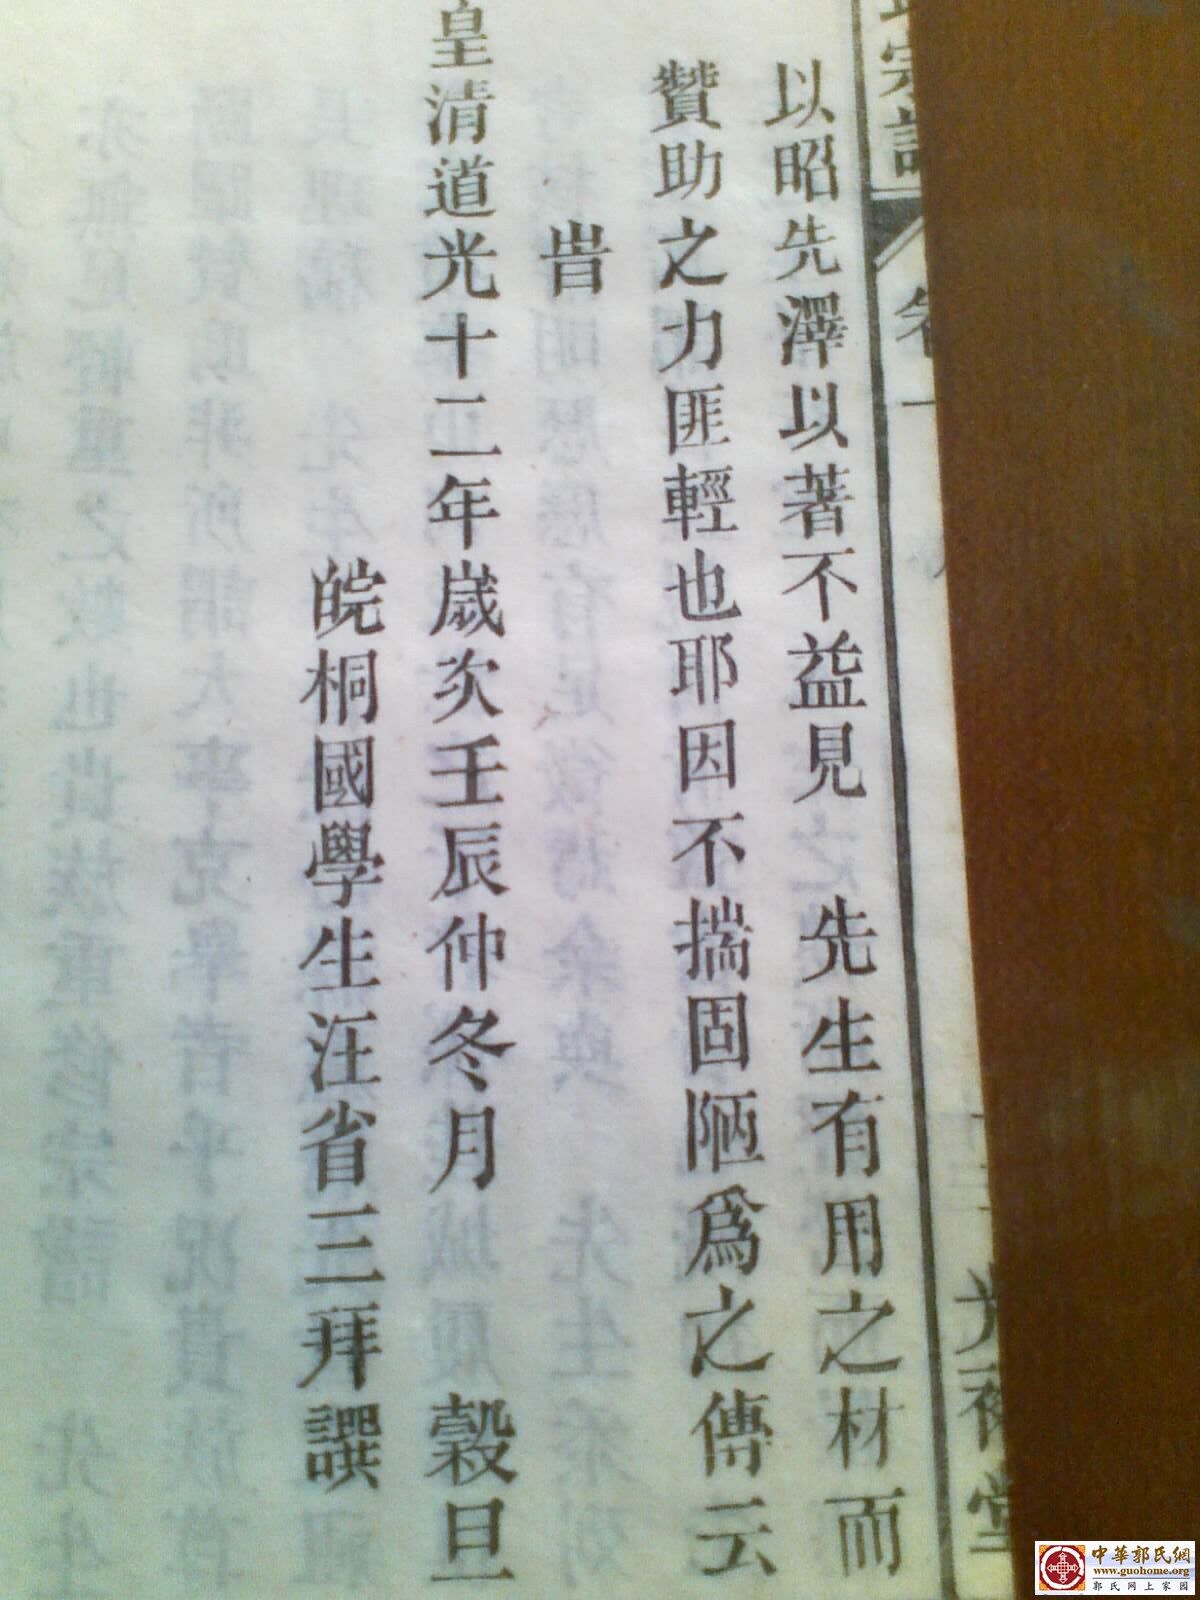 宗譜
卷一
光裕堂
以昭先澤以著不益見 先生有用之材而
贊助之力匪輕也耶因不揣固陋爲之傳云
旹
皇清道光十二年歲次壬辰仲冬月 穀旦
皖桐國學生汪省三拜譔
中華郭氏網
www.guohome.org
郭氏网上家园